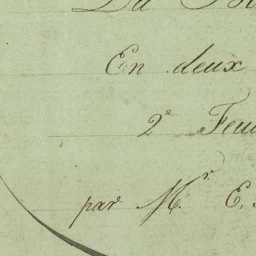 En deux
2e Feui
par Mr. E.